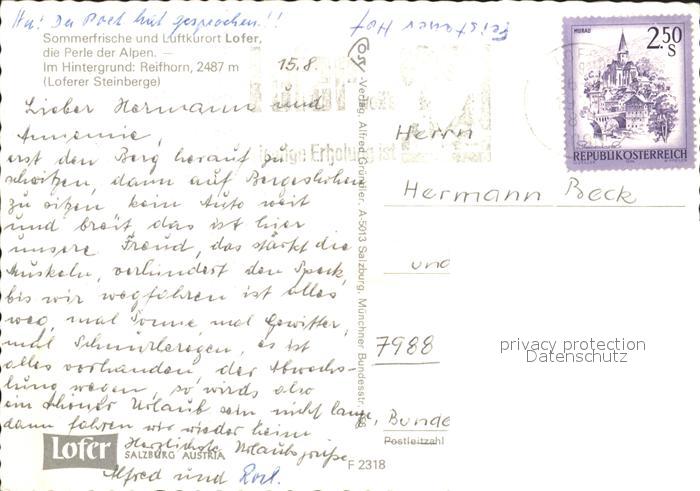 Na! Der Poet hat gesprochen!!
Feistauer Hof
Sommerfrische und Luftkurort Lofer,
die Perle der Alpen. —
Im Hintergrund: Reifhorn, 2487 m
(Loferer Steinberge)
15.8.
Lieber Hermann und
Annemie,
erst den Berg herauf zu
schwitzen, dann auf Bergeshöhen
zu sitzen kein Auto weit
und breit, das ist hier
unsere Freud, das stärkt die
Muskeln, verhindert den Speck,
bis wir wegfahren ist alles
weg, mal Sonne, mal Gewitter,
mal Schnürlregen, es ist
alles vorhanden der Abwechs-
lung wegen, so wirds also
ein schöner Urlaub sein nicht lange,
dann fahren wir wieder heim
Herzlichste Urlaubsgrüße
Alfred und Rosl.
Lofer
SALZBURG AUSTRIA
F 2318
Cosy-Verlag, Alfred Gründler, A-5013 Salzburg, Münchner Bundesstr.
Erholung ist
MURAU
2.50
S
REPUBLIK ÖSTERREICH
Herrn
Hermann Beck
und
7988
Bunde
Postleitzahl
privacy protection
Datenschutz